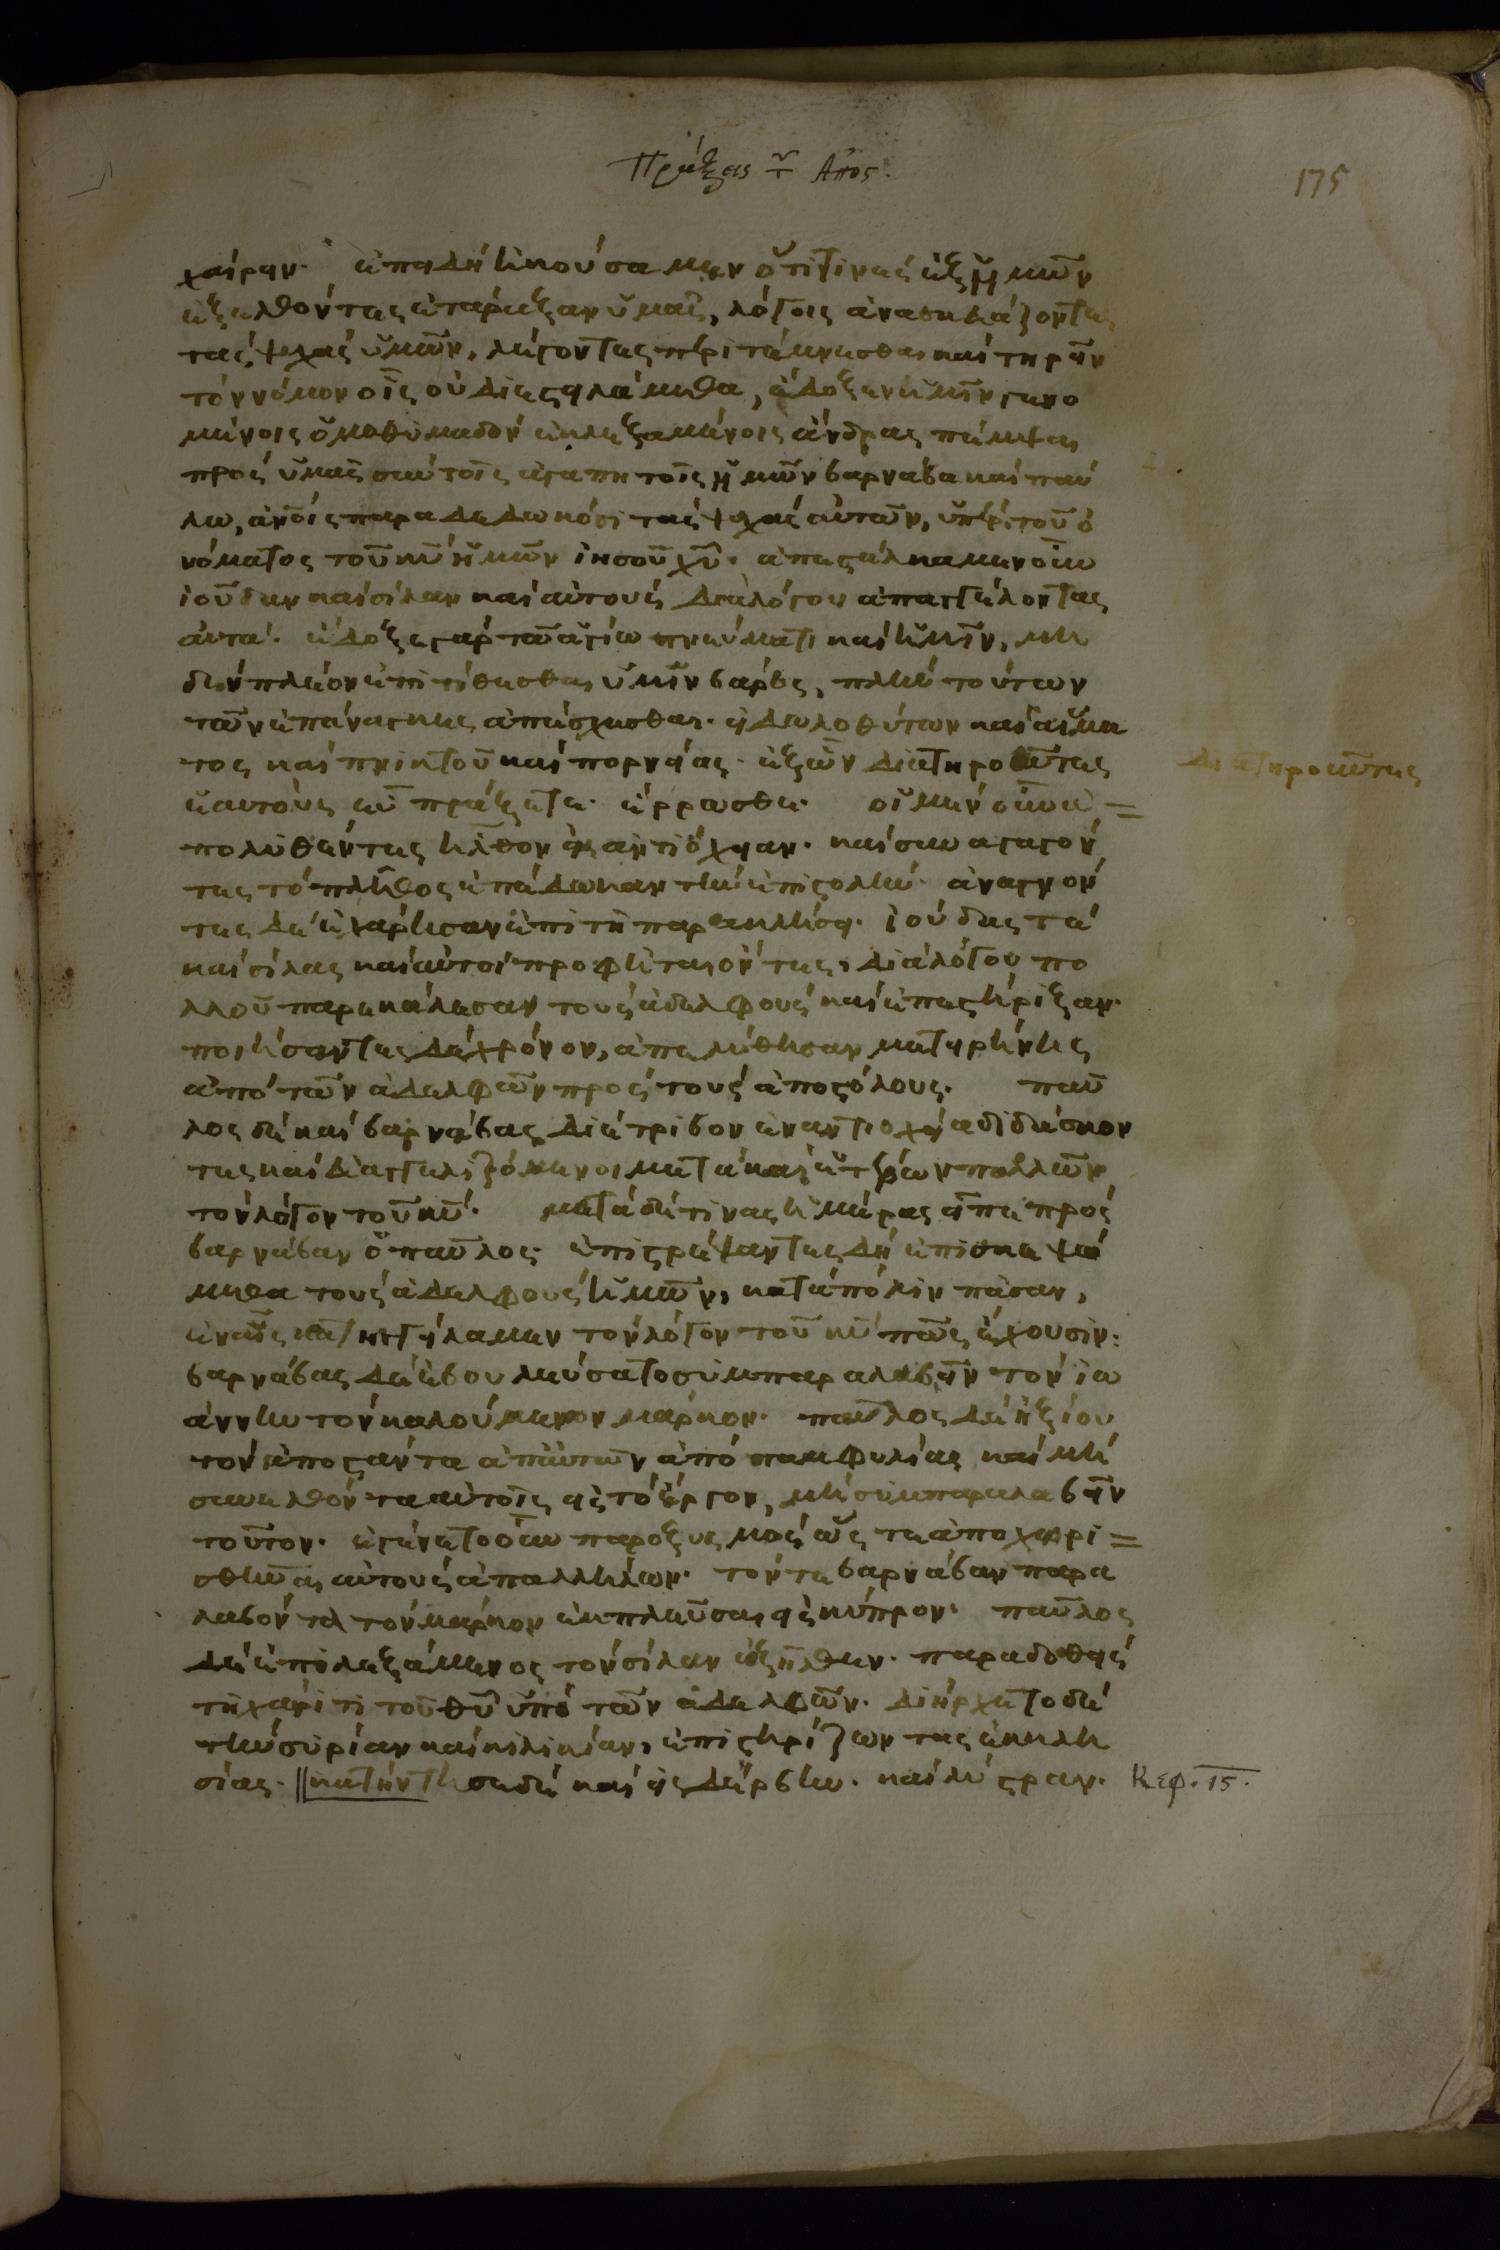 Πράξεις τ̃ Αποσ.
175
χαίρειν. ἐπειδὴ ἠκούσαμεν ὅτι τινὲς ἐξ ἡμῶν
ἐξελθόντες ἐτάραξαν ὑμᾶς, λόγοις ἀνασκευάζοντες
τὰς ψυχὰς ὑμῶν, λέγοντες περιτέμνεσθαι καὶ τηρεῖν
τὸν νόμον οἷς οὐ διεστειλάμεθα, ἔδοξεν ἡμῖν γενο
μένοις ὁμοθυμαδὸν ἐκλεξαμένοις ἄνδρας πέμψαι
πρὸς ὑμᾶς σὺν τοῖς ἀγαπητοῖς ἡμῶν βαρνάβα καὶ παύ
λω, ἀνοις παραδεδωκόσι τὰς ψυχὰς αὐτῶν, ὑπὲρ τοῦ ὀ
νόματος τοῦ κυ ἡμῶν ἰησοῦ χυ. ἀπεστάλκαμεν οὖν
ἰούδαν καὶ σίλαν καὶ αὐτοὺς διὰ λόγου ἀπαγγέλοντας
αὐτά. ἔδοξε γὰρ τῶ ἁγίω πνεύματι καὶ ἡμῖν, μη
δὲν πλέον ἐπιτίθεσθαι ὑμῖν βάρος, πλὴν τούτων
τῶν ἐπάναγκες ἀπέχεσθαι. εἰδωλοθύτων καὶ αἵμα
τος καὶ πνικτοῦ καὶ πορνείας. ἐξ ὧν διατηροῦντες
διατηροῦντες
ἑαυτοὺς εὖ πράξετε. ἔρρωσθε. οἱ μὲν οὖν ἀ=
πολυθέντες ἦλθον εἰς ἀντιόχειαν. καὶ συναγαγόν
τες τὸ πλῆθος ἐπέδωκαν τὴν ἐπιστολήν. ἀναγνόν
τες δὲ ἐχάρησαν ἐπὶ τῆ παρακλήσει. ἰούδας τὲ
καὶ σίλας καὶ αὐτοὶ προφῆται ὄντες, διὰ λόγου πο
λλοῦ παρεκάλεσαν τοὺς ἀδελφοὺς καὶ ἐπεστήριξαν.
ποιήσαντες δὲ χρόνον, ἀπελύθησαν μετ εἰρήνης
ἀπὸ τῶν ἀδελφῶν πρὸς τοὺς ἀποστόλους. παῦ
λος δὲ καὶ βαρνάβας διέτριβον ἐν ἀντιοχεία διδάσκον
τες καὶ εὐαγγελιζόμενοι μετὰ καὶ ἑτέρων πολλῶν
τὸν λόγον τοῦ κυ. μετὰ δέ τινας ἡμέρας εἶπε πρὸς
βαρνάβαν ὁ παῦλος. ἐπιστρέψαντες δὴ ἐπισκεψώ
μεθα τοὺς ἀδελφοὺς ἡμῶν, κατὰ πόλιν πᾶσαν,
ἐν αἷς κατηγγείλαμεν τὸν λόγον τοῦ κυ πῶς ἔχουσιν:
βαρνάβας δὲ ἐβουλεύσατο συμπαραλαβεῖν τὸν ἰω
άννην τὸν καλούμενον μάρκον. παῦλος δὲ ἠξίου
τὸν ἀποστάντα ἀπαὐτῶν ἀπὸ παμφυλίας καὶ μὴ
συνελθόντα αὐτοῖς εἰς τὸ ἔργον, μὴ συμπαραλαβεῖν
τοῦτον. ἐγένετο οὖν παροξυσμὸς ὥστε ἀποχωρι=
σθῆναι αὐτοὺς ἀπαλλήλων. τόν τε βαρνάβαν παρα
λαβόντα τὸν μάρκον ἐκπλεῦσαι εἰς κύπρον. παῦλος
δὲ ἐπιλεξάμενος τὸν σίλαν ἐξῆλθεν. παραδοθεὶς
τῆ χάριτι τοῦ θυ ὑπὸ τῶν ἀδελφῶν. διήρχετο δὲ
τὴν συρίαν καὶ κιλικίαν, ἐπιστηρίζων τὰς ἐκκλη
σίας. ‖ κατήντησε δὲ καὶ εἰς δέρβην. καὶ λύστραν. Κεφ. 15.